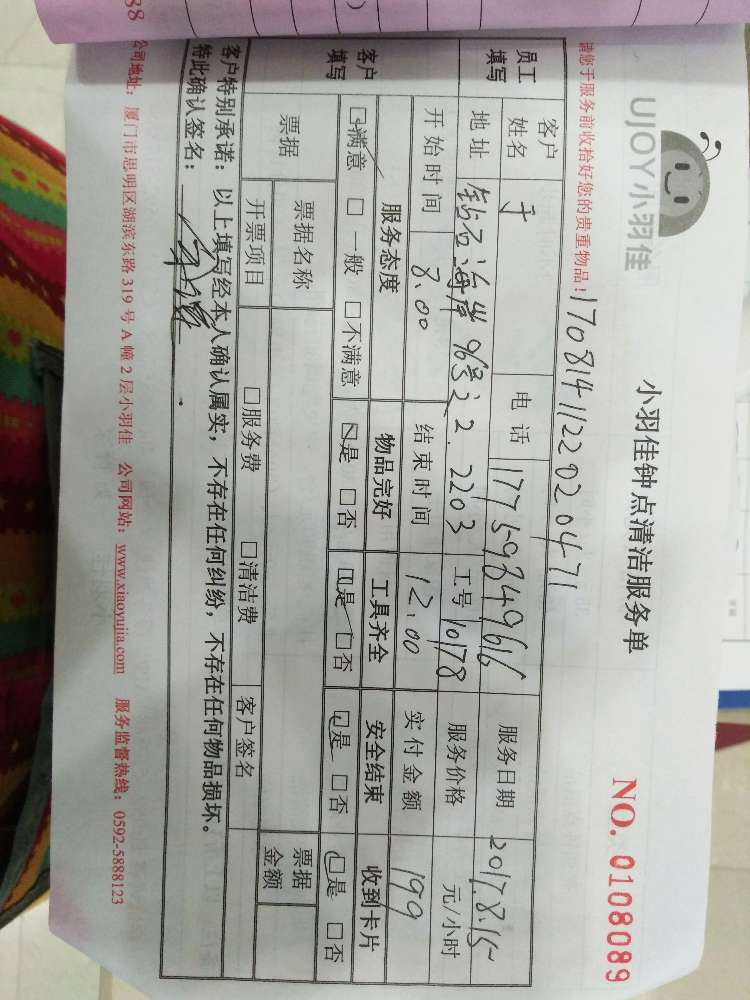 UJOY小羽佳
小羽佳钟点清洁服务单
NO. 0108089
请您于服务前收拾好您的贵重物品！
170814112202 0471
员工填写
客户姓名
于
电话
17759849616
服务日期
2017.8.15
地址
96号之2.2203
工号
10178
服务价格
元/小时
开始时间
8.00
结束时间
12.00
实付金额
199
客户填写
服务态度
物品完好
工具齐全
安全结束
收到卡片
☑满意 □一般 □不满意
☑是 □否
☑是 □否
☑是 □否
☑是 □否
票据
票据名称
票据金额
开票项目
□服务费 □清洁费
客户签名
客户特别承诺：以上填写经本人确认属实，不存在任何纠纷，不存在任何物品损坏。
特此确认签名：
公司地址：厦门市思明区湖滨东路319号A幢2层小羽佳 公司网站：www.xiaoyujia.com 服务监督热线：0592-5888123